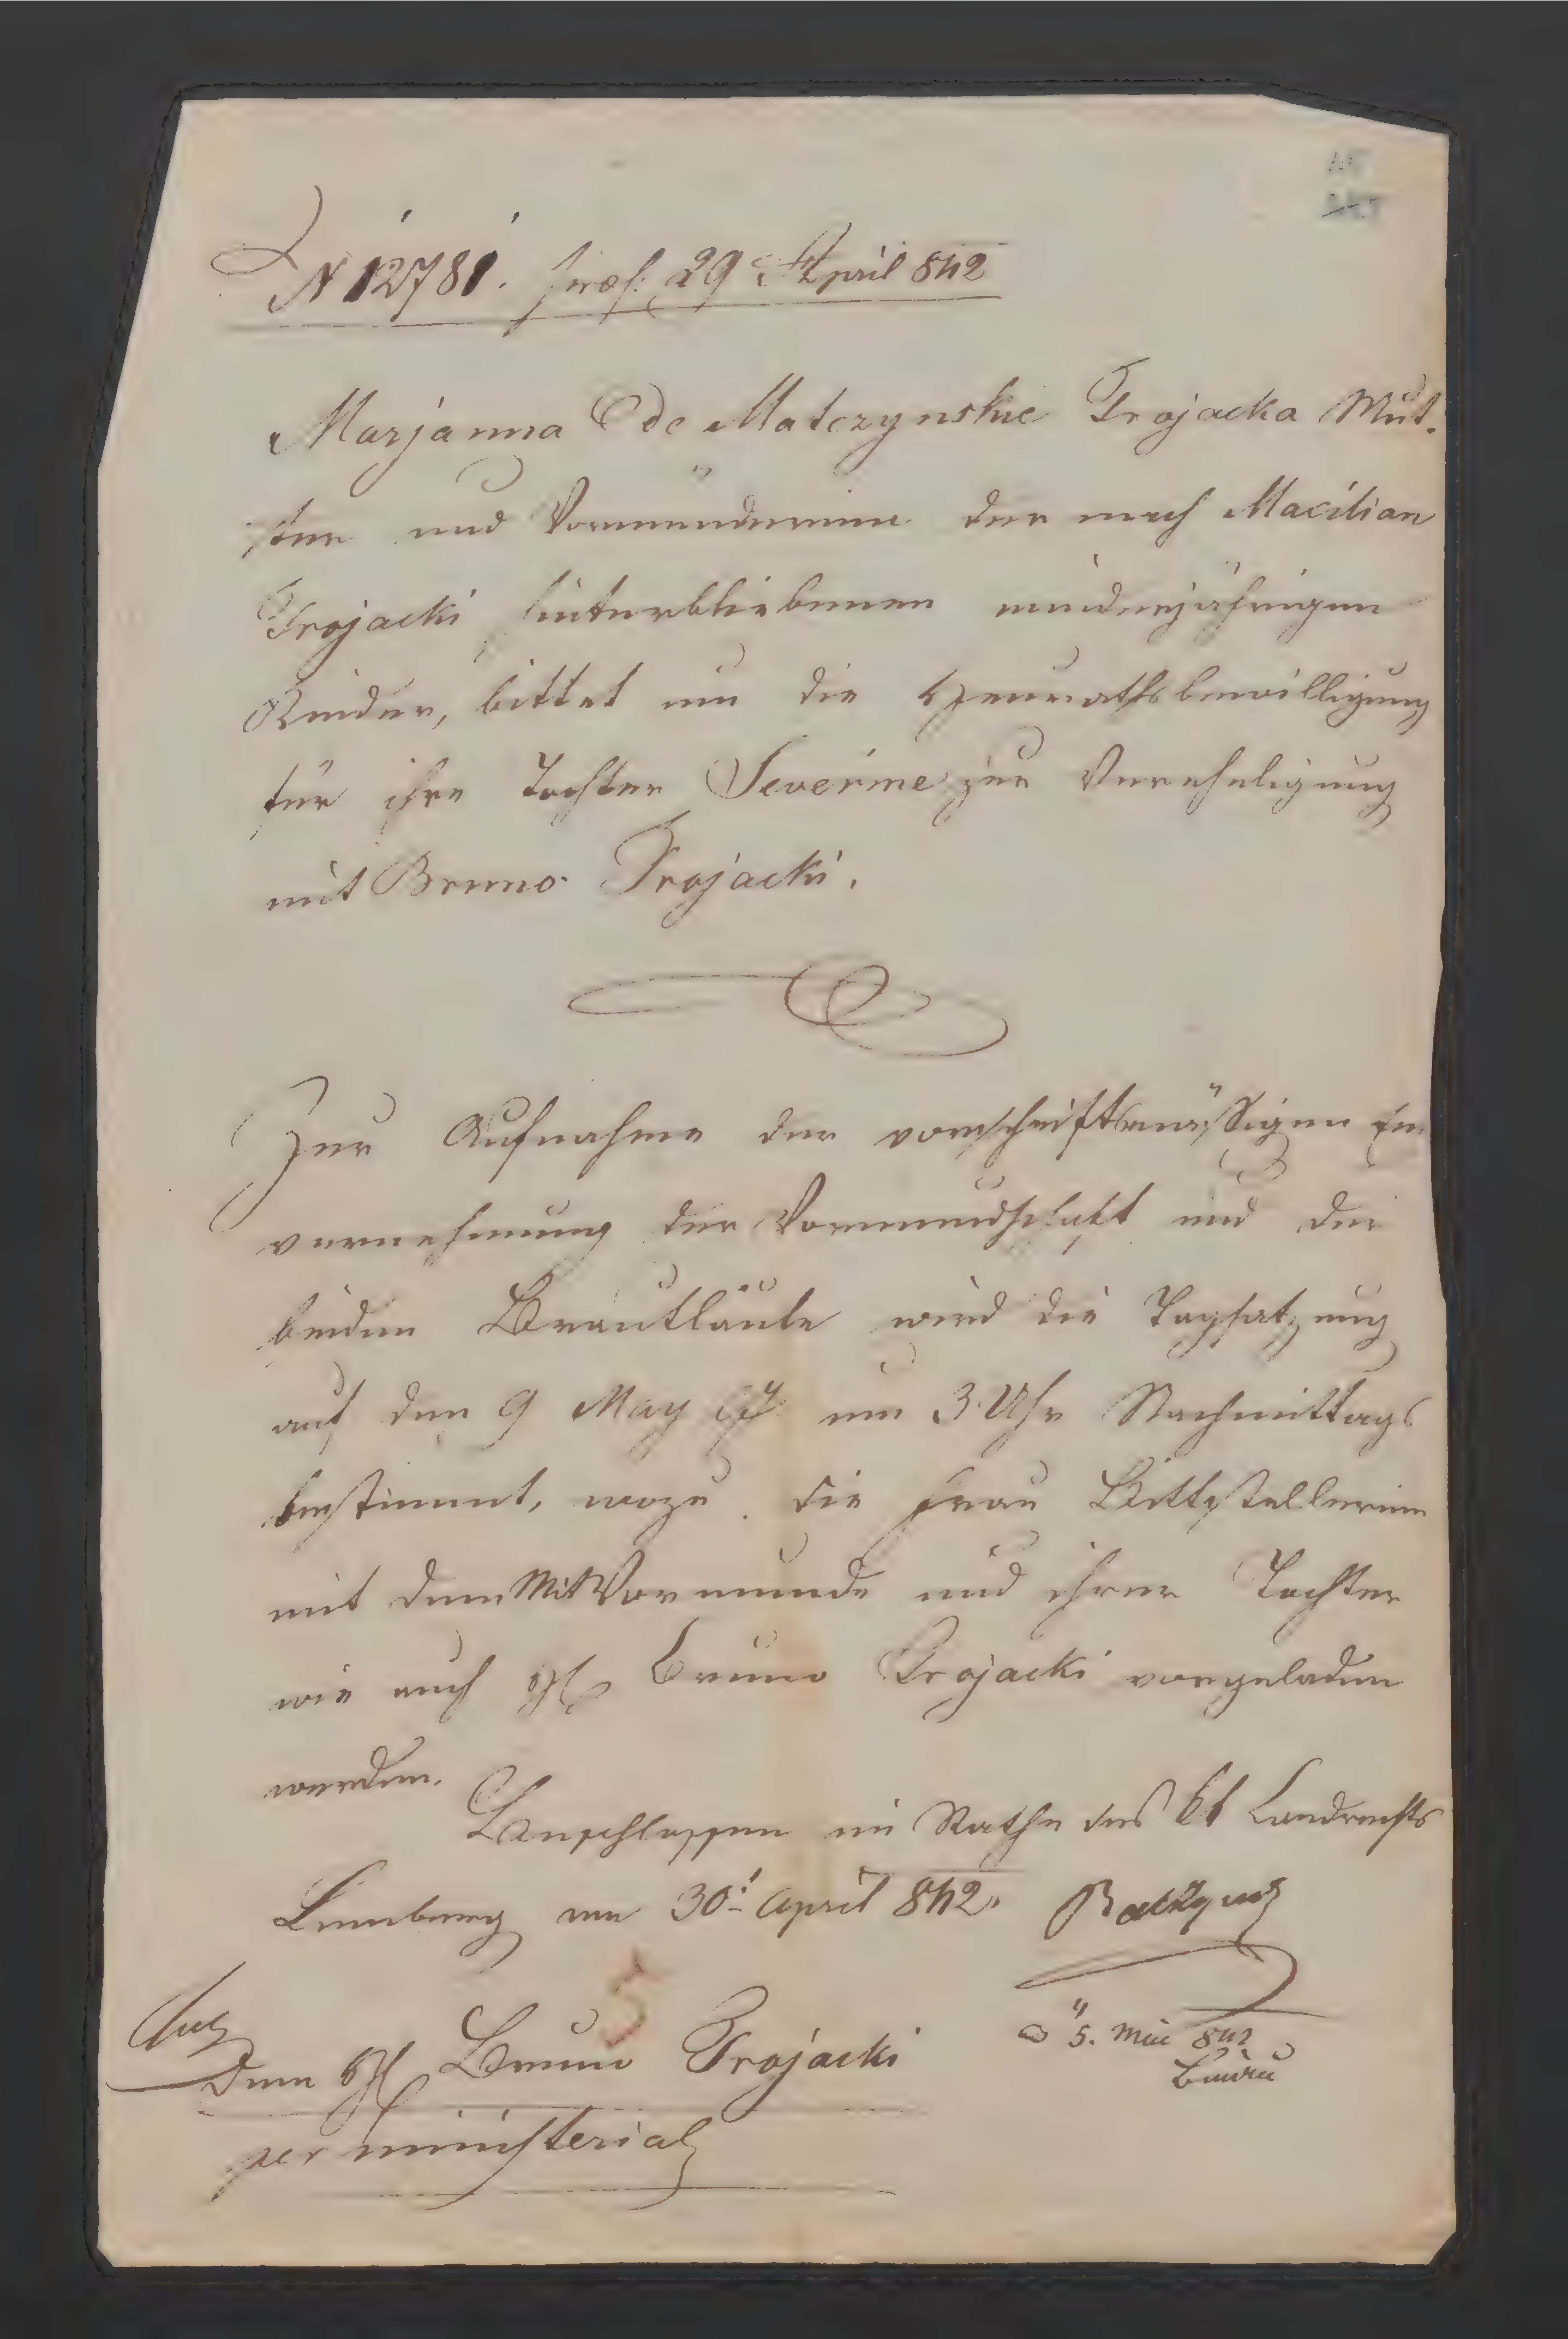 N 12781. praes: 29 April 842
Marjanna de Matczynskie Trojacka Mut-
ter und Vormünderinn der nach Macilian
Trojacki hinterbliebenen minderjährigen
Kinder, bittet um die Heurathsbewilligung
für ihre Tochter Severine zur Vereheligung
mit Bruno Trojacki.
Zur Aufnahme der vorschriftsmäßigen Ein
vernehmung der Vormundschaft und der
beiden Brautläute wird die Tagsatzung
auf den 9 May um 3 Uhr Nachmittags
bestimmt, wozu die Frau Bittstellerinn
mit dem MitVormunde und ihrer Tochter
wie auch H Bruno Trojacki vorgeladen
werden.
Beschlossen im Rathe des kk Landrechts
Lemberg am 30t April 842.
5. Mai 842
5
Dem H Bruno Trojacki
per ministerial